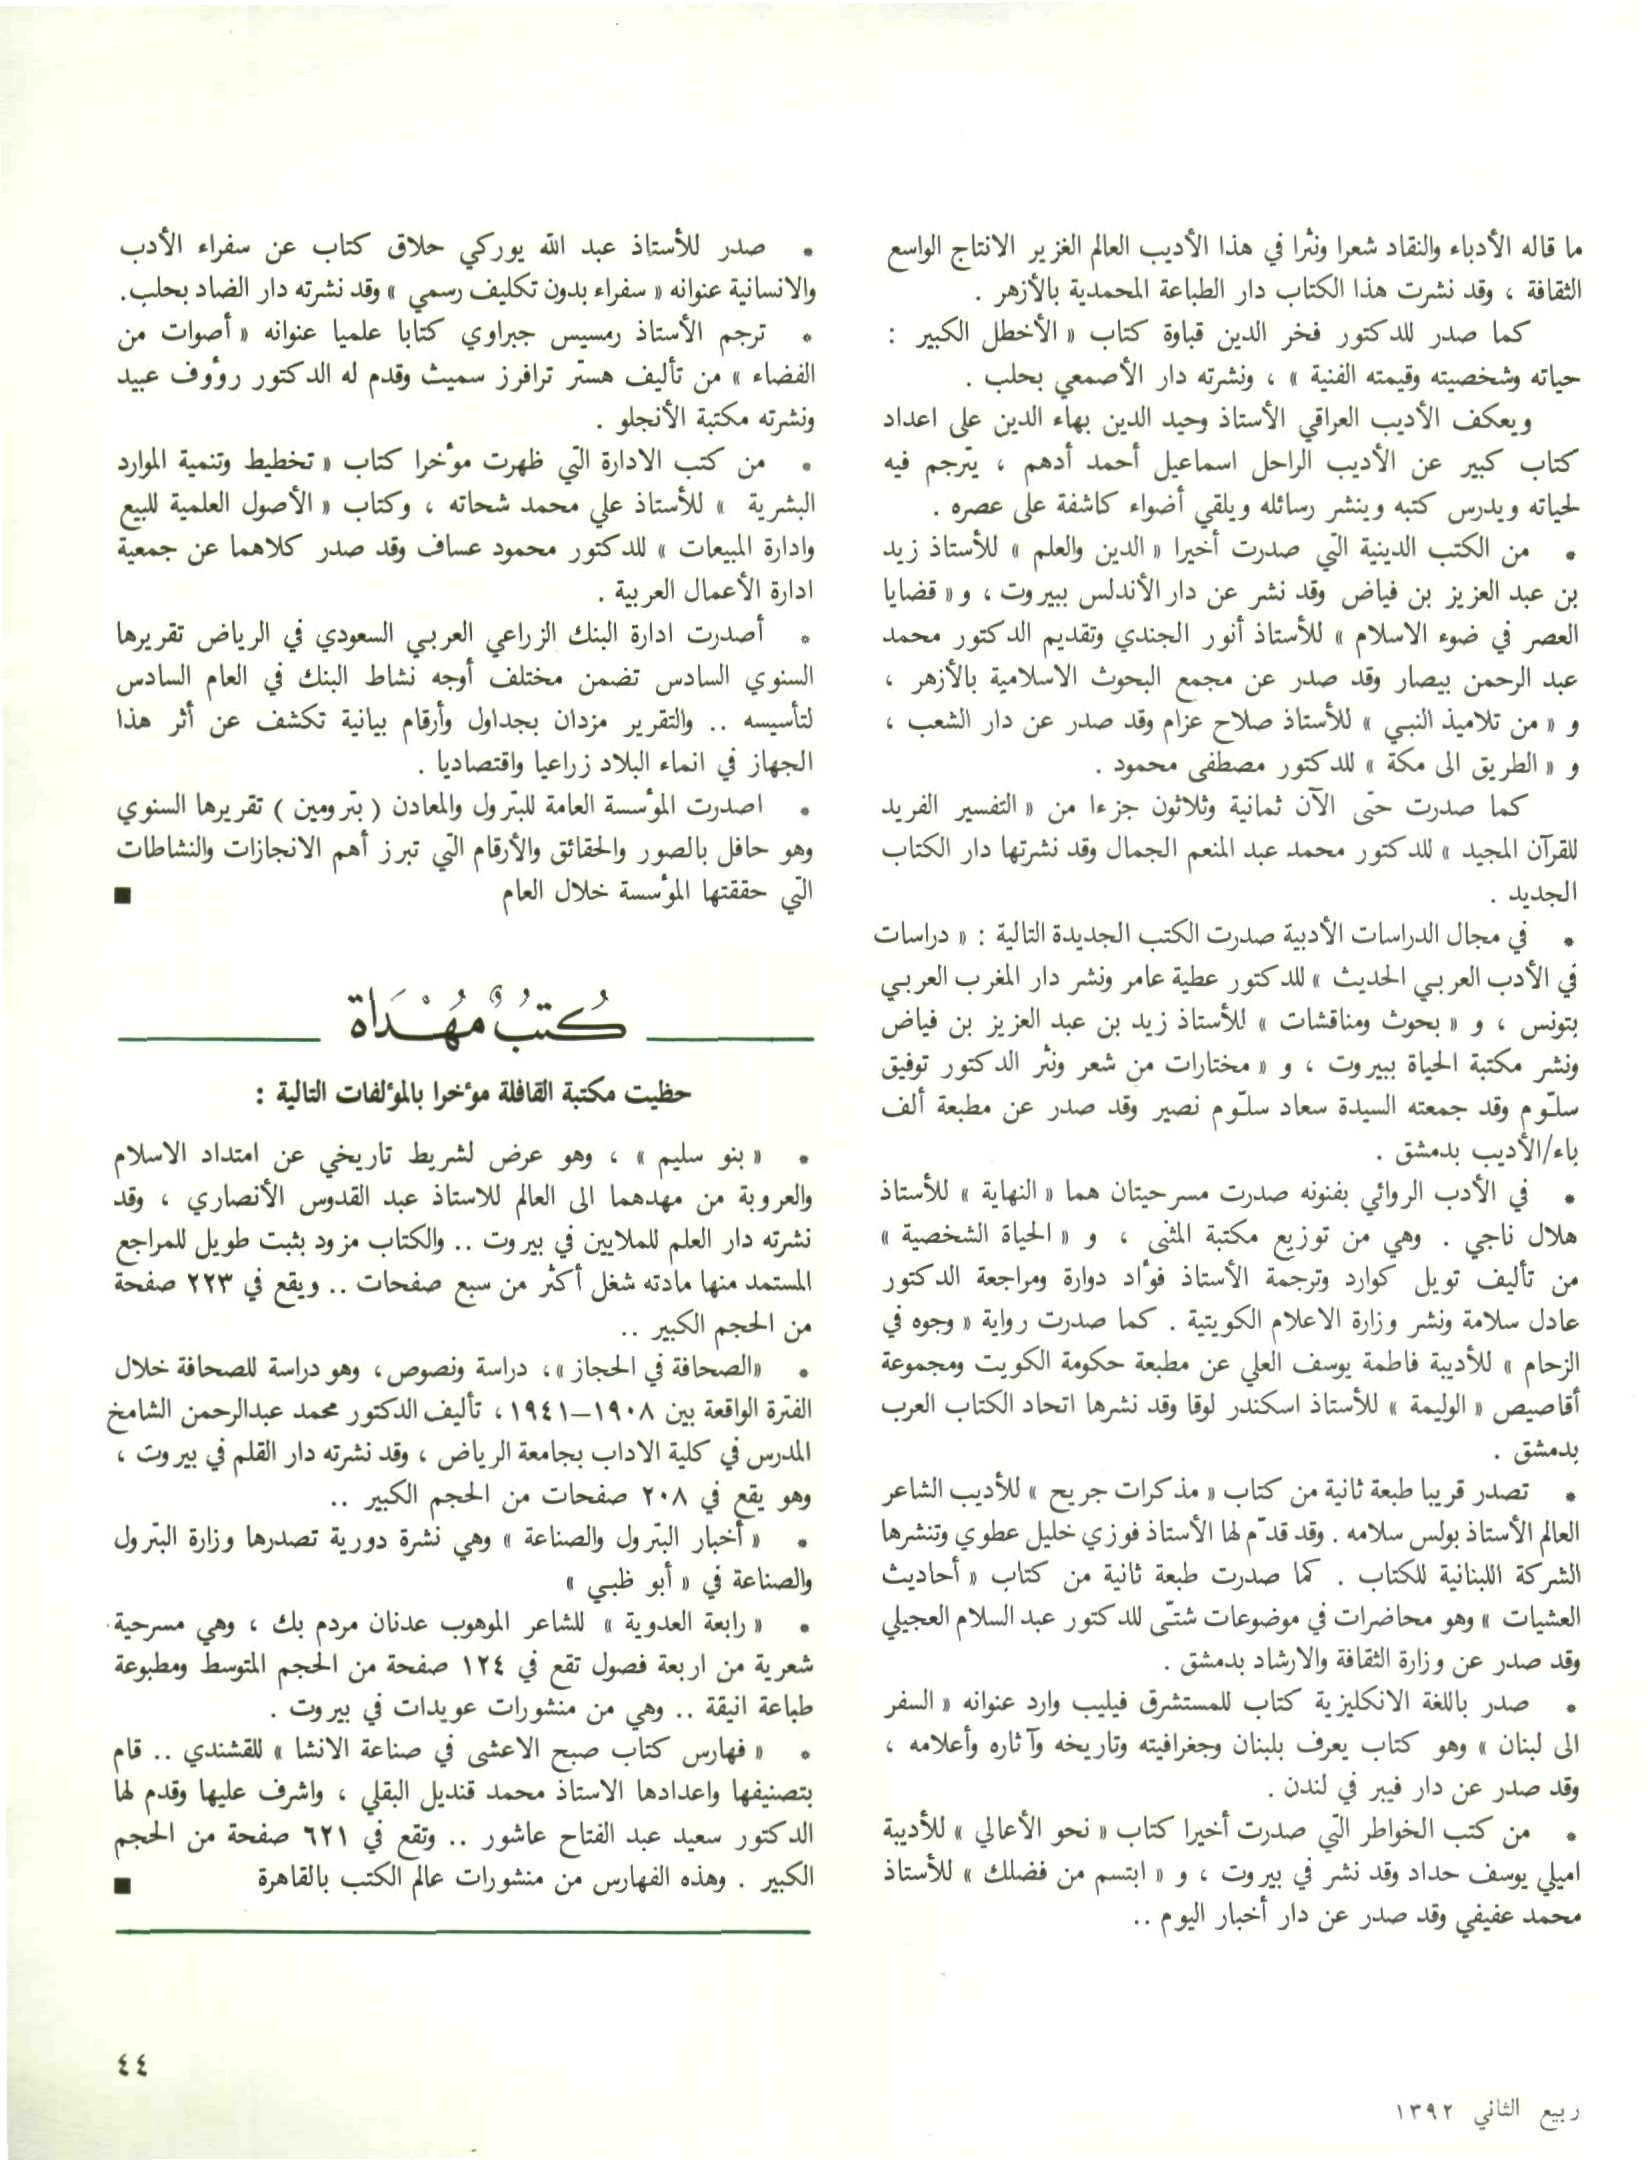 ما قاله الأدباء والنقاد شعرا ونثرا في هذا الأديب العالم الغزير الانتاج الواسع
الثقافة ، وقد نشرت هذا الكتاب دار الطباعة المحمدية بالأزهر .
كما صدر للدكتور فخر الدين قباوة كتاب « الأخطل الكبير :
حياته وشخصيته وقيمته الفنية » ، ونشرته دار الأصمعي بحلب .
ويعكف الأديب العراقي الأستاذ وحيد الدين بهاء الدين على اعداد
كتاب كبير عن الأديب الراحل اسماعيل أحمد أدهم ، يترجم فيه
لحياته ويدرس كتبه وينشر رسائله ويلقي أضواء كاشفة على عصره .
• من الكتب الدينية التي صدرت أخيرا « الدين والعلم » للأستاذ زيد
بن عبد العزيز بن فياض وقد نشر عن دار الأندلس ببيروت ، و « قضايا
العصر في ضوء الاسلام » للأستاذ أنور الجندي وتقديم الدكتور محمد
عبد الرحمن بيصار وقد صدر عن مجمع البحوث الاسلامية بالأزهر ،
و « من تلاميذ النبي » للأستاذ صلاح عزام وقد صدر عن دار الشعب ،
و « الطريق الى مكة » للدكتور مصطفى محمود .
كما صدرت حتى الآن ثمانية وثلاثون جزءا من « التفسير الفريد
للقرآن المجيد » للدكتور محمد عبد المنعم الجمال وقد نشرتها دار الكتاب
الجديد .
• في مجال الدراسات الأدبية صدرت الكتب الجديدة التالية : « دراسات
في الأدب العربي الحديث » للدكتور عطية عامر ونشر دار المغرب العربي
بتونس ، و « بحوث ومناقشات » للأستاذ زيد بن عبد العزيز بن فياض
ونشر مكتبة الحياة ببيروت ، و « مختارات من شعر ونثر الدكتور توفيق
سلّوم وقد جمعته السيدة سعاد سلّوم نصير وقد صدر عن مطبعة ألف
باء/الأديب بدمشق .
• في الأدب الروائي بفنونه صدرت مسرحيتان هما « النهاية » للأستاذ
هلال ناجي . وهي من توزيع مكتبة المثنى ، و « الحياة الشخصية »
من تأليف تويل كوارد وترجمة الأستاذ فؤاد دوارة ومراجعة الدكتور
عادل سلامة ونشر وزارة الاعلام الكويتية . كما صدرت رواية « وجوه في
الزحام » للأديبة فاطمة يوسف العلي عن مطبعة حكومة الكويت ومجموعة
أقاصيص « الوليمة » للأستاذ اسكندر لوقا وقد نشرها اتحاد الكتاب العرب
بدمشق .
• تصدر قريبا طبعة ثانية من كتاب « مذكرات جريح » للأديب الشاعر
العالم الأستاذ بولس سلامه . وقد قدّم لها الأستاذ فوزي خليل عطوي وتنشرها
الشركة اللبنانية للكتاب . كما صدرت طبعة ثانية من كتاب « أحاديث
العشيات » وهو محاضرات في موضوعات شتّى للدكتور عبد السلام العجيلي
وقد صدر عن وزارة الثقافة والارشاد بدمشق .
• صدر باللغة الانكليزية كتاب للمستشرق فيليب وارد عنوانه « السفر
الى لبنان » وهو كتاب يعرف بلبنان وجغرافيته وتاريخه وآثاره وأعلامه ،
وقد صدر عن دار فيبر في لندن .
• من كتب الخواطر التي صدرت أخيرا كتاب « نحو الأعالي » للأديبة
اميلي يوسف حداد وقد نشر في بيروت ، و « ابتسم من فضلك » للأستاذ
محمد عفيفي وقد صدر عن دار أخبار اليوم ..
• صدر للأستاذ عبد الله يوركي حلاق كتاب عن سفراء الأدب
والانسانية عنوانه « سفراء بدون تكليف رسمي » وقد نشرته دار الضاد بحلب.
• ترجم الأستاذ رمسيس جبراوي كتابا علميا عنوانه « أصوات من
الفضاء » من تأليف هستر ترافرز سميث وقدم له الدكتور رؤوف عبيد
ونشرته مكتبة الأنجلو .
• من كتب الادارة التي ظهرت مؤخرا كتاب « تخطيط وتنمية الموارد
البشرية » للأستاذ علي محمد شحاته ، وكتاب « الأصول العلمية للبيع
وادارة المبيعات » للدكتور محمود عساف وقد صدر كلاهما عن جمعية
ادارة الأعمال العربية .
• أصدرت ادارة البنك الزراعي العربي السعودي في الرياض تقريرها
السنوي السادس تضمن مختلف أوجه نشاط البنك في العام السادس
لتأسيسه .. والتقرير مزدان بجداول وأرقام بيانية تكشف عن أثر هذا
الجهاز في انماء البلاد زراعيا واقتصاديا .
• اصدرت المؤسسة العامة للبترول والمعادن ( بترومين ) تقريرها السنوي
وهو حافل بالصور والحقائق والأرقام التي تبرز أهم الانجازات والنشاطات
التي حققتها المؤسسة خلال العام ■
كُتبٌ مُهْدَاة
حظيت مكتبة القافلة مؤخرا بالمؤلفات التالية :
• « بنو سليم » ، وهو عرض لشريط تاريخي عن امتداد الاسلام
والعروبة من مهدهما الى العالم للاستاذ عبد القدوس الأنصاري ، وقد
نشرته دار العلم للملايين في بيروت .. والكتاب مزود بثبت طويل للمراجع
المستمد منها مادته شغل أكثر من سبع صفحات .. ويقع في ٢٢٣ صفحة
من الحجم الكبير ..
• «الصحافة في الحجاز»، دراسة ونصوص، وهو دراسة للصحافة خلال
الفترة الواقعة بين ١٩٠٨–١٩٤١، تأليف الدكتور محمد عبدالرحمن الشامخ
المدرس في كلية الاداب بجامعة الرياض ، وقد نشرته دار القلم في بيروت ،
وهو يقع في ٢٠٨ صفحات من الحجم الكبير ..
• « أخبار البترول والصناعة » وهي نشرة دورية تصدرها وزارة البترول
والصناعة في « أبو ظبي »
• « رابعة العدوية » للشاعر الموهوب عدنان مردم بك ، وهي مسرحية
شعرية من اربعة فصول تقع في ١٢٤ صفحة من الحجم المتوسط ومطبوعة
طباعة انيقة .. وهي من منشورات عويدات في بيروت .
• « فهارس كتاب صبح الاعشى في صناعة الانشا » للقشندي .. قام
بتصنيفها واعدادها الاستاذ محمد قنديل البقلي ، واشرف عليها وقدم لها
الدكتور سعيد عبد الفتاح عاشور .. وتقع في ٦٢١ صفحة من الحجم
الكبير . وهذه الفهارس من منشورات عالم الكتب بالقاهرة ■
٤٤
ربيع الثاني ١٣٩٢